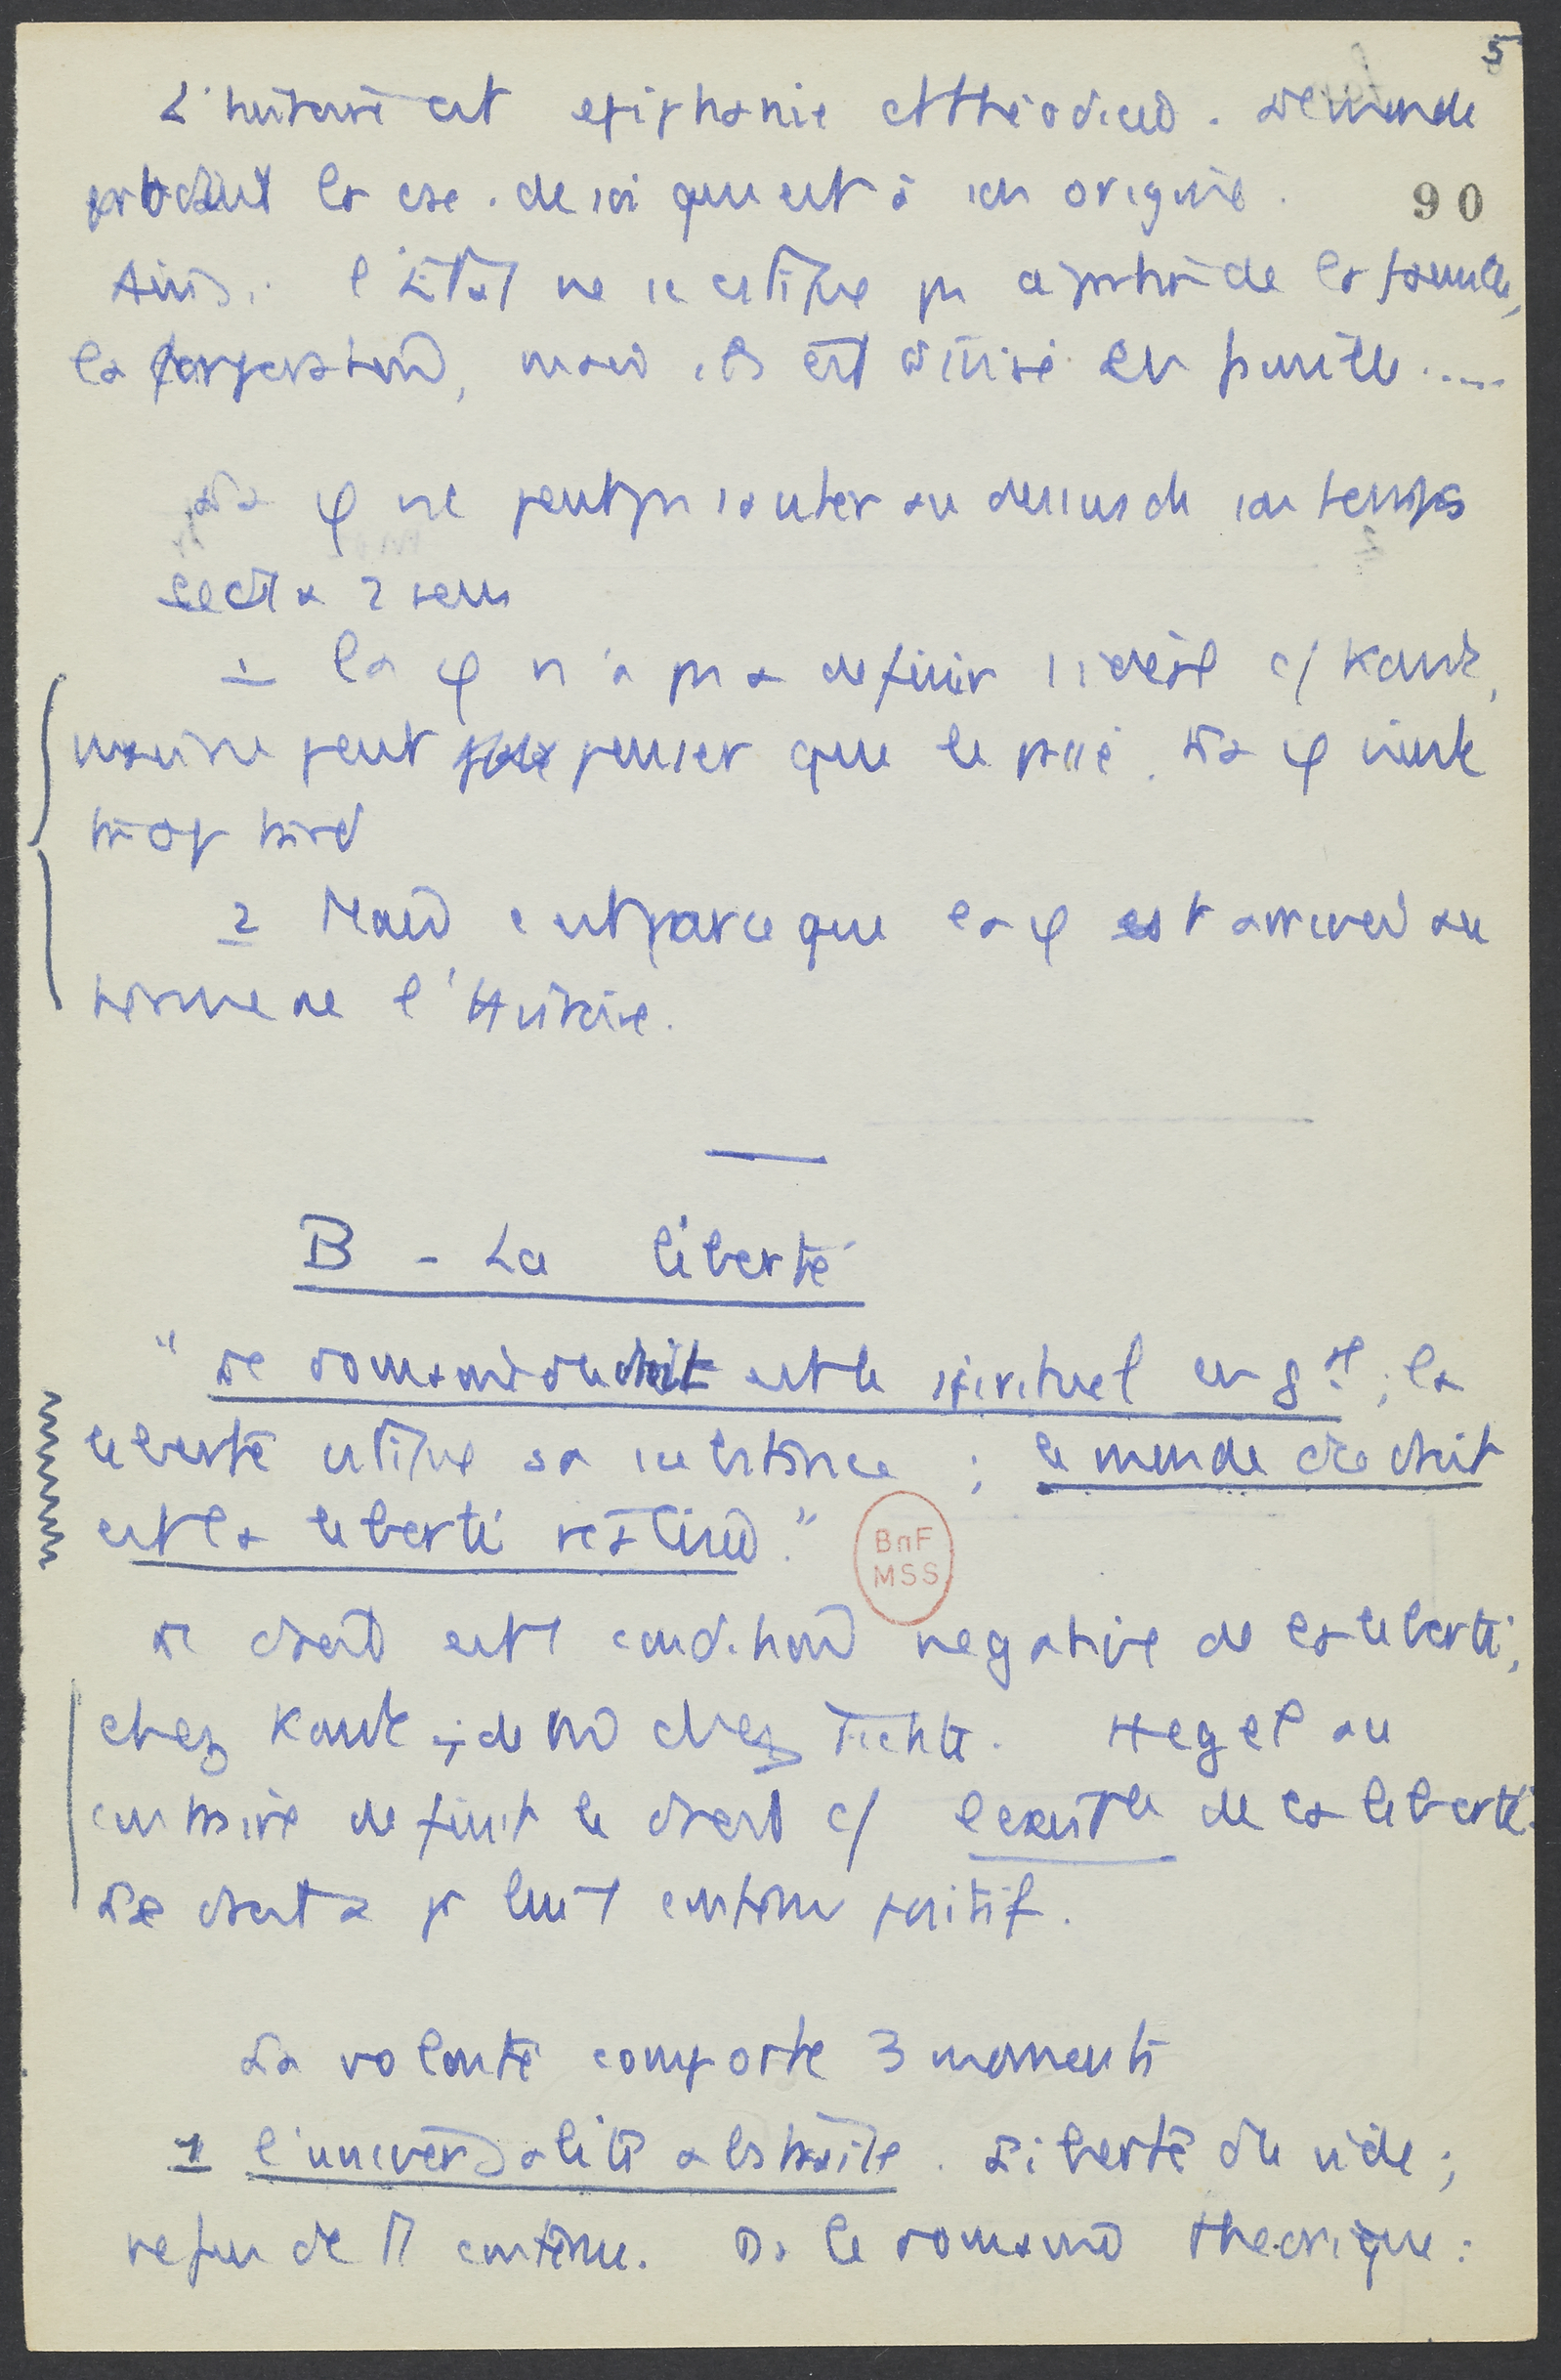 5
L'histoire est epiphanie et théodicée. Le monde
produit la cse. de soi qui est à son origine.
90
Ainsi. l'Etat ne se constitue pas à partir de la famille,
la corporation, mais elles est divisé en famille.....
La φ ne peut pas sauter au dessus de son temps
Ceci a 2 sens
1 La φ n'a pas à definir l'idéal c/ Kant,
mais ne peut penser que le passé. La φ vient
trop tard
2 Mais c'est parce que la φ est arrivée au
terme de l'Histoire.
B - La liberté
"Le domaine du droit est le spirituel en gal; la
liberté constitue sa substance ; le monde du droit
est la liberté réalisée."
Le droit est condition negative de la liberté,
chez Kant ; idem chez Fichte. Hegel au
contraire definit le droit c/ l'existence de la liberté.
Le droit a pr lui contenu positif.
La volonté comporte 3 moments
1 l'universalité abstraite. Liberté du vide;
refus de tt contenu. Ds le domaine theorique:
BnF
MSS